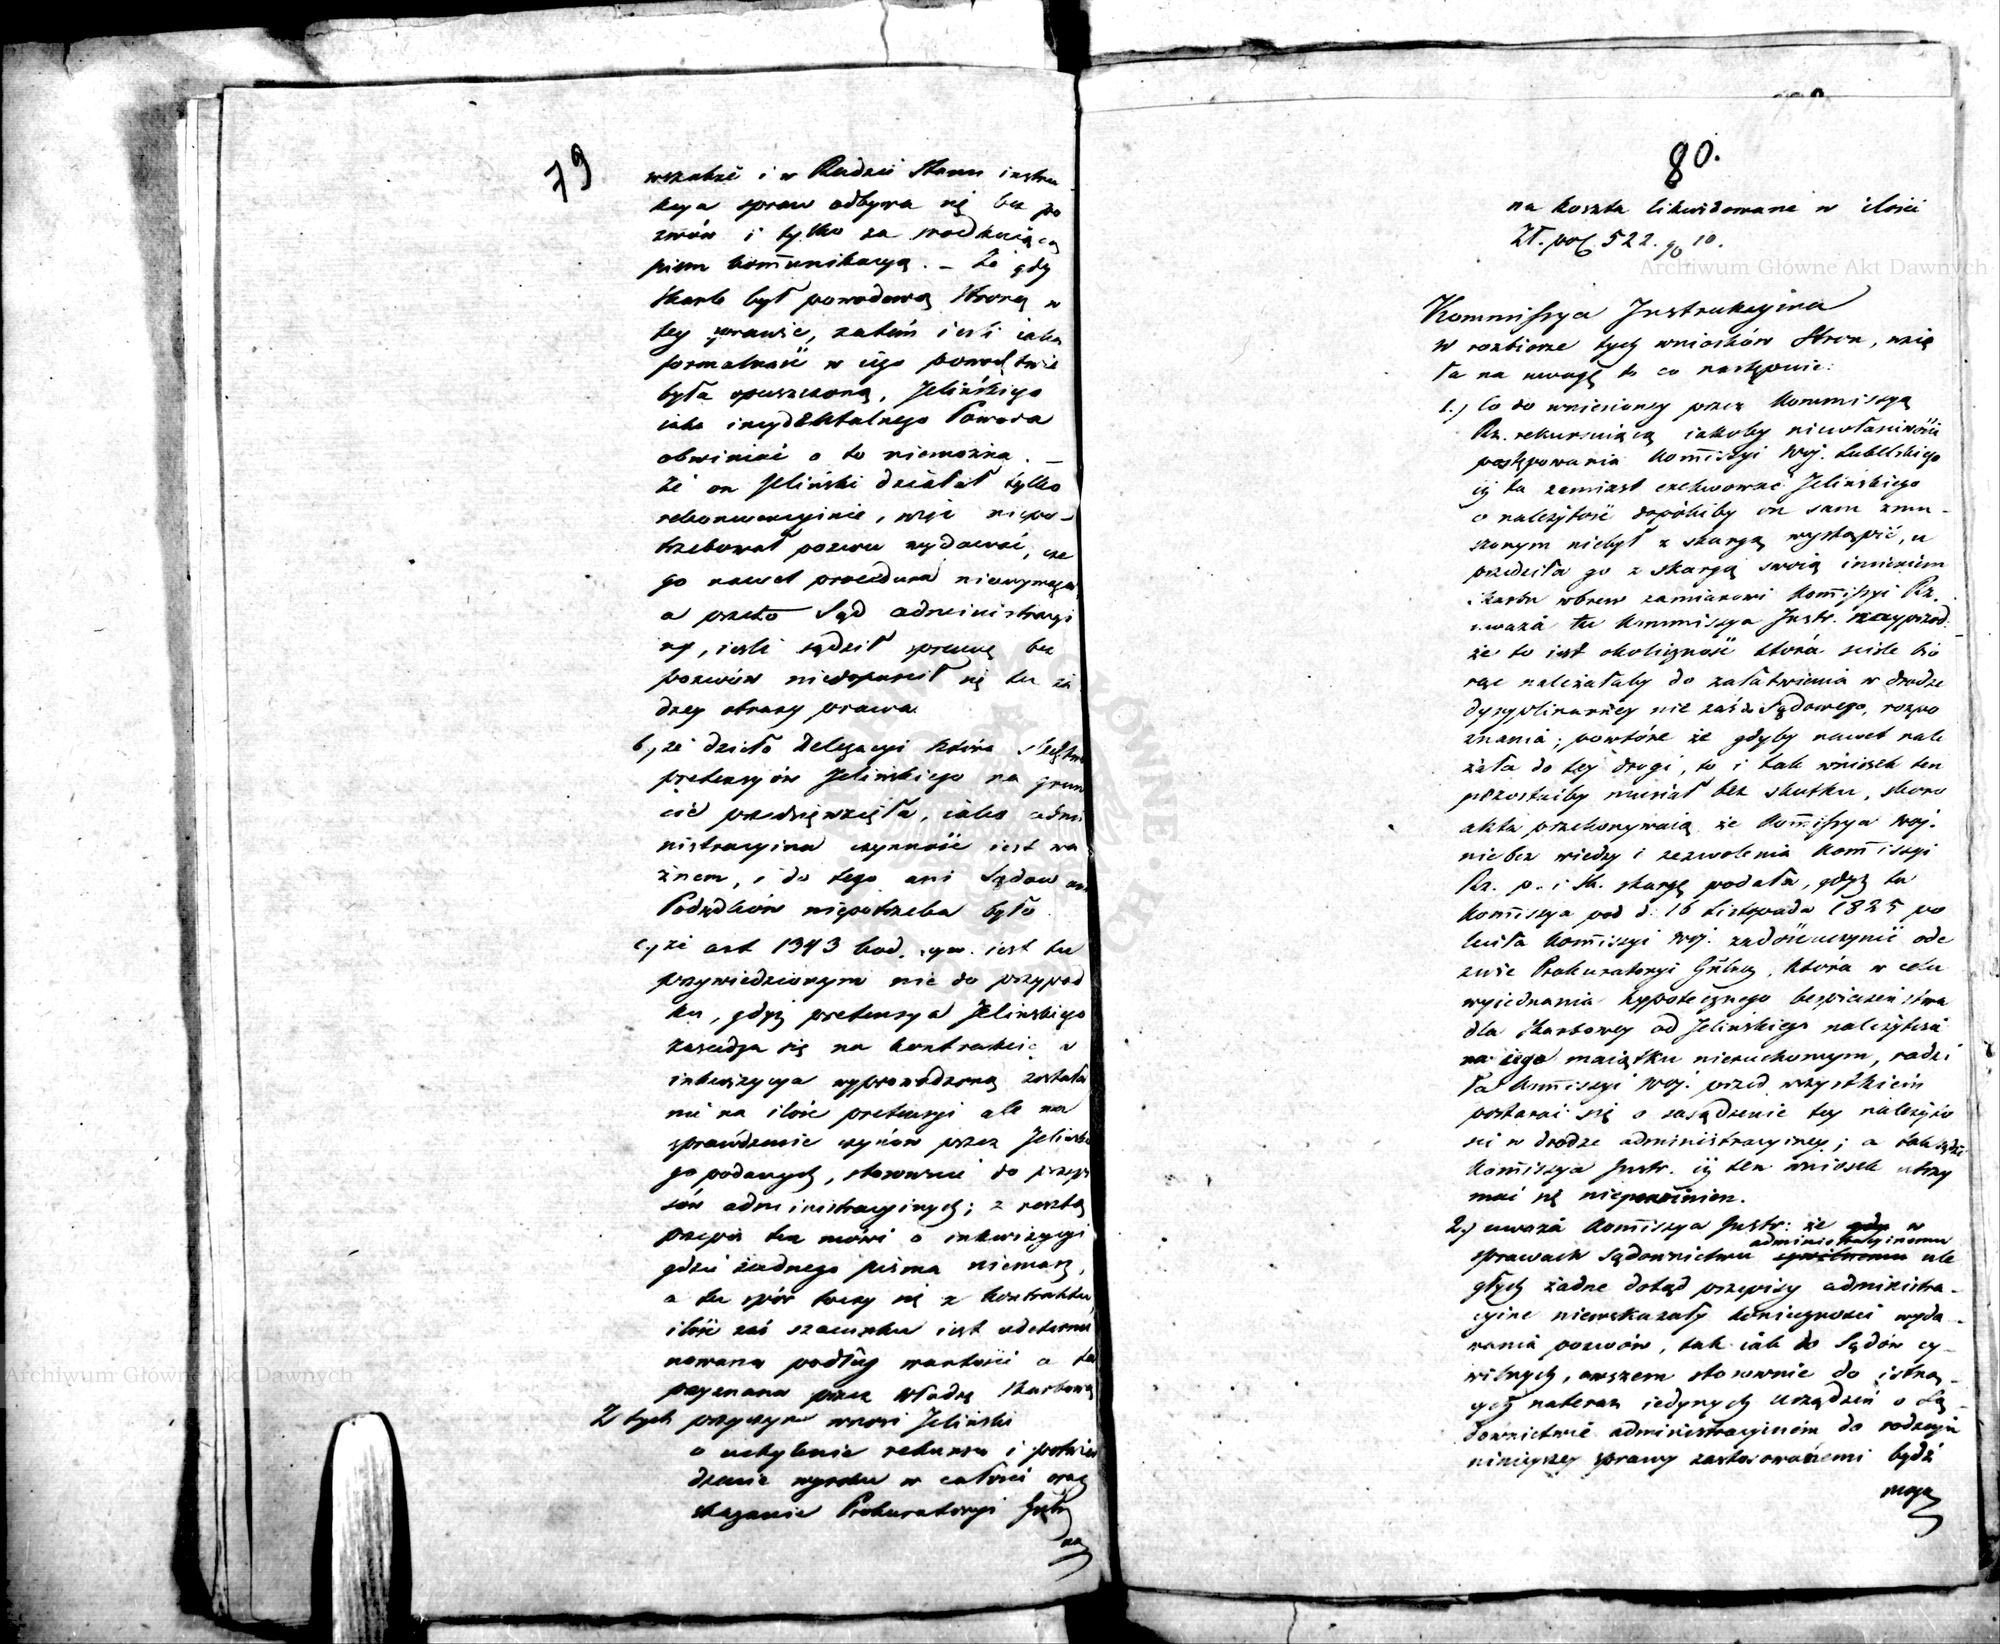 79
wszakże i w Radzie Stanu instru
kcya spraw odbywa się bez po
zwów i tylko za
pism kom̄unikacyą. – Że gdy
Skarb był powodową Stroną w
tey sprawie, zatém iesli iaka
formalność w iego powodztwie
była opuszczoną, Jelińskiego
iako incydentalnego Powoda
obwiniać o to niemożna. –
że on Jeliński działał tylko
rekonwencyinie, więc niepo-
trzebował pozwu wydawać, cze
go nawet procedura niewymaga
a przeto Sąd administracyi
ny, iesli sądził sprawę bez
pozwów niedopuścił się tu ża
dney obrazy prawa.
b, że dzieło Delegacyi która śledztwo
pretensyów Jelińskiego na grun
cie przedsięwzięła, iako admi
nistracyina czynność iest wa
żnem, i do tego ani Sądow ani
Podsędków niepotrzeba było
c, że art 1343 kod. cyw. iest tu
przywiedzionym nie do przypad
ku, gdyż pretensya Jelińskiego
zasadza się na kontrakcie a
inkwizycya wyprowadzoną została
nie na ilość pretensyi ale na
sprawdzenie czynów przez Jelińskie
go podanych, stosownie do przepi
sów administracyinych; z resztą
przepis ten mówi o inkwizycyi
gdzie żadnego pisma niemasz,
a tu spór toczy się z kontraktu,
ilość zaś szacunku iest
nowana podług wartości a ta
przyznana przez Władzę Skarbową
Z tych przyczyn wnosi Jeliński
o uchylenie rekursu i potwier
dzenie wyroku w całości oraz
skazanie Prokuratoryi Gnlney
na
80.
na koszta likwidowane w ilości
Zł. pol. 522. gr 10.
Kommissya Instrukcyina
W rozbiorze tych wniosków Stron, wzię
ła na uwagę to co następuie:
1.) Co do wniesioney przez Kommissyą
Rz. rekursuiącą iakoby niewłaściwości
postępowania Kom̄issyi Woj. Lubelskiego
iż ta zamiast exekwować Jelińskiego
o należytość dopókiby on sam zmu-
szonym niebył z skargą wystąpić, u
przedziła go z skargą swoią imieniem
skarbu wbrew zamiarowi Kom̄issyi Rz.
uważa tu Kommissya Instr. naprzód
że to iest okoliczność która scisle bio
rąc należałaby do załatwienia w drodze
dyscyplinarney nie zaś Sądowego, rozpo
znania; powtóre że gdyby nawet nale
żała do tey drogi, to i tak wniosek ten
pozostaiby musiał bez skutku, skoro
akta przekonywaią że Kom̄issya Woj.
nie bez wiedzy i zezwolenia Kom̄issyi
Rz. p. i Sk. skargę podała, gdyż ta
Kom̄issya pod d. 16 Listopada 1825 po
leciła Kom̄issyi Woj. zadość uczynić ode
zwie Prokuratoryi Gnlney, która w celu
wyiednania hypotecznego bespieczeństwa
dla Skarbowey od Jelińskiego należytości
na iego maiątku nieruchomym, radzi
ła Kom̄issyi Woj. przed wszystkiem
postarać się o zasądzenie tey należyto
ści w drodze administracyiney; a tak sądzi
Kom̄issya Instr. iż ten wniosek utrzy
mać się niepowinien.
2.) uważa Kom̄issya Instr: że gdy w
administracyinemu
sprawach Sądownictwu cywilnemu ule
głych żadne dotąd przepisy administra-
cyine niewskazały konieczności wyda-
wania pozwów, tak iak do Sądów cy-
wilnych, owszem stosownie do istną-
cych nateraz iedynych urządzeń o Są-
downictwie administracyinem do rodzaju
ninieyszey sprawy zastosowanemi bydź
mogą